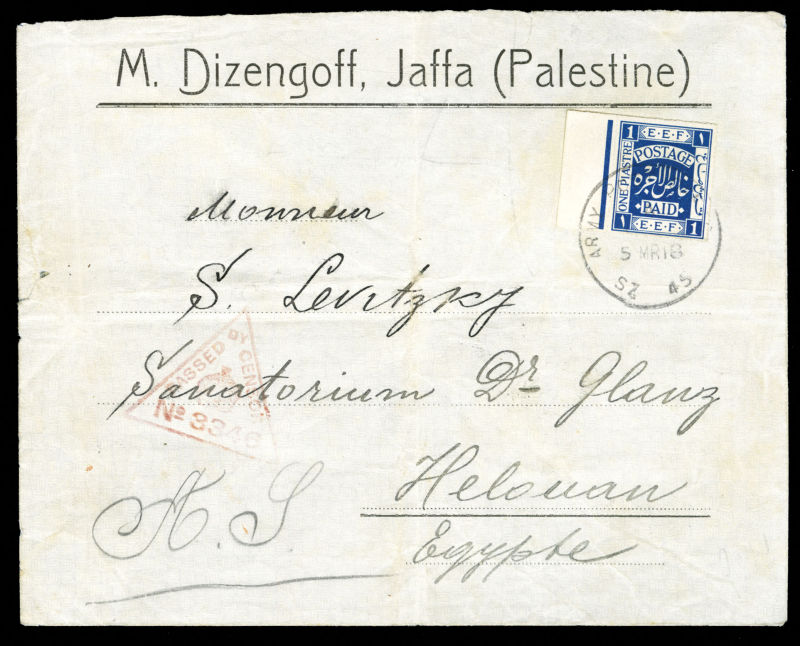 M. Dizengoff, Jaffa (Palestine)
1 E·E·F ١
ONE PIASTRE
POSTAGE
خالص الأجرة
PAID
١ E·E·F 1
ARMY
5 MR18
SZ 45
Monsieur
S. Levitzky
PASSED BY CENSOR
Nº 3346
Sanatorium Dr Glanz
Helouan
Egypte
N. S.